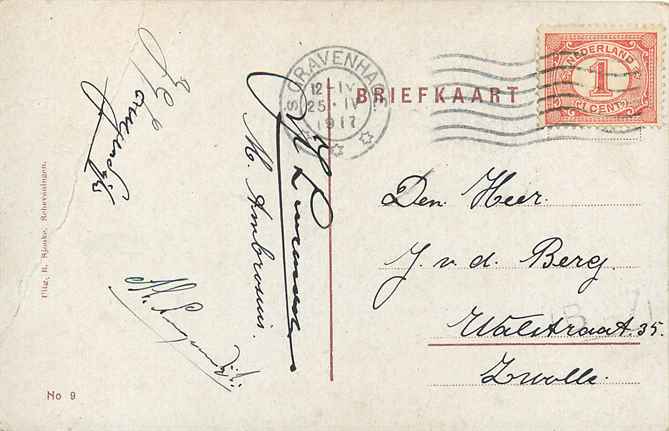 BRIEFKAART
'S GRAVENHAGE
12-1V
25.IV
1917
NEDERLAND
1
CENT
Den Heer
J. v. d. Berg.
Walstraat 35.
Zwolle.
M. Ambrosius.
Uitg. R. Sjouke, Scheveningen.
No 9